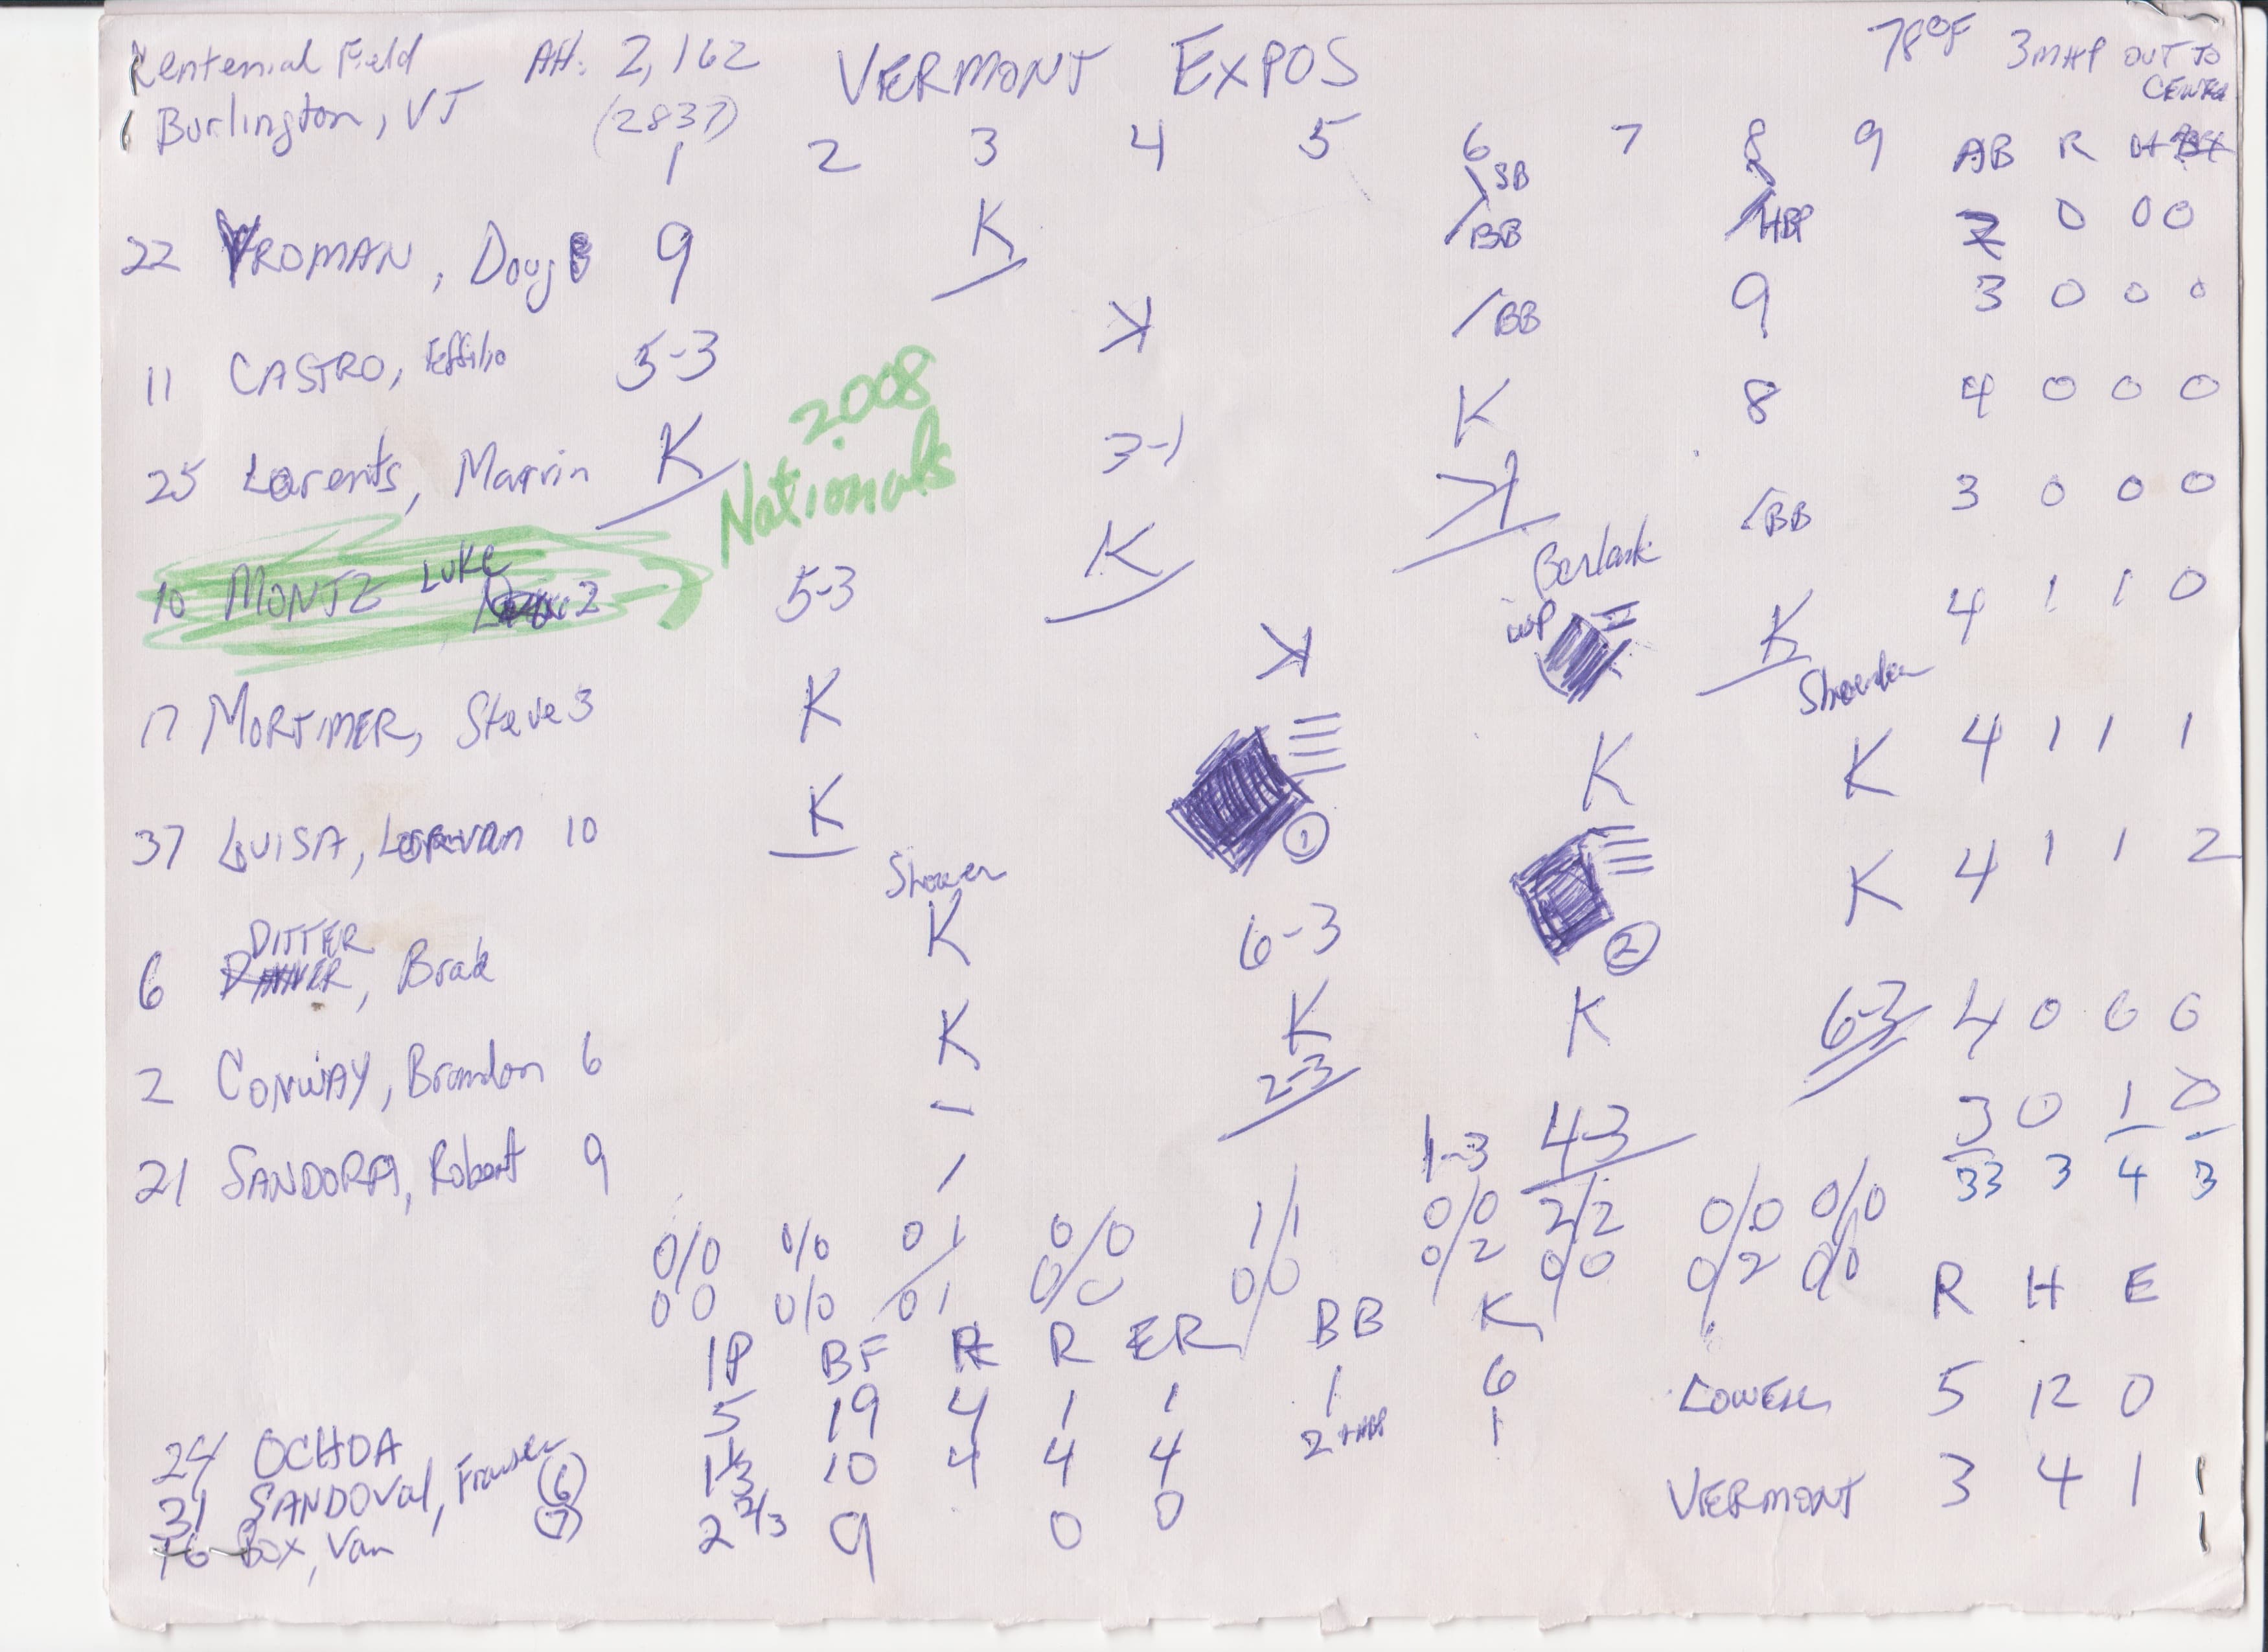 Centennial Field Att: 2,162 VERMONT EXPOS 78°F 3 MHP OUT TO CENTER
Burlington, VT (2837)
1 2 3 4 5 6 7 8 9 AB R H
SB
22 VROMAN, Doug 9 K BB HBP 2 0 0 0
11 CASTRO, 5-3 K BB 9 3 0 0 0
2008
Nationals
25 Lorents, Marvin K 3-1 K 8 4 0 0 0
10 MONTZ LUKE 2 5-3 K K BB 3 0 0 0
WP
17 MORTIMER, Steve 3 K K K 4 1 1 0
37 LUISA, 10 K 1 K K 4 1 1 1
Shower
6 DITTER, Brad K 6-3 2 K 4 1 1 2
2 CONWAY, Brandon 6 K K 2-3 K 6-3 4 0 0 0
21 SANDORA, Robert 9 1-3 4-3 3 0 1 0
33 3 4 3
0/0 0/0 0 1 0/0 1/1 0/0 2/2 0/0 0/0
0 0 0/0 0 1 0/0 0/0 0/2 0/0 0/2 0/0
IP BF H R ER BB K R H E
24 OCHOA 5 19 4 1 1 1 6 LOWELL 5 12 0
31 SANDOVAL, 6 1 1/3 10 4 4 4 2 + HBP 1 VERMONT 3 4 1
16 BOX, Van 7 2 2/3 9 0 0